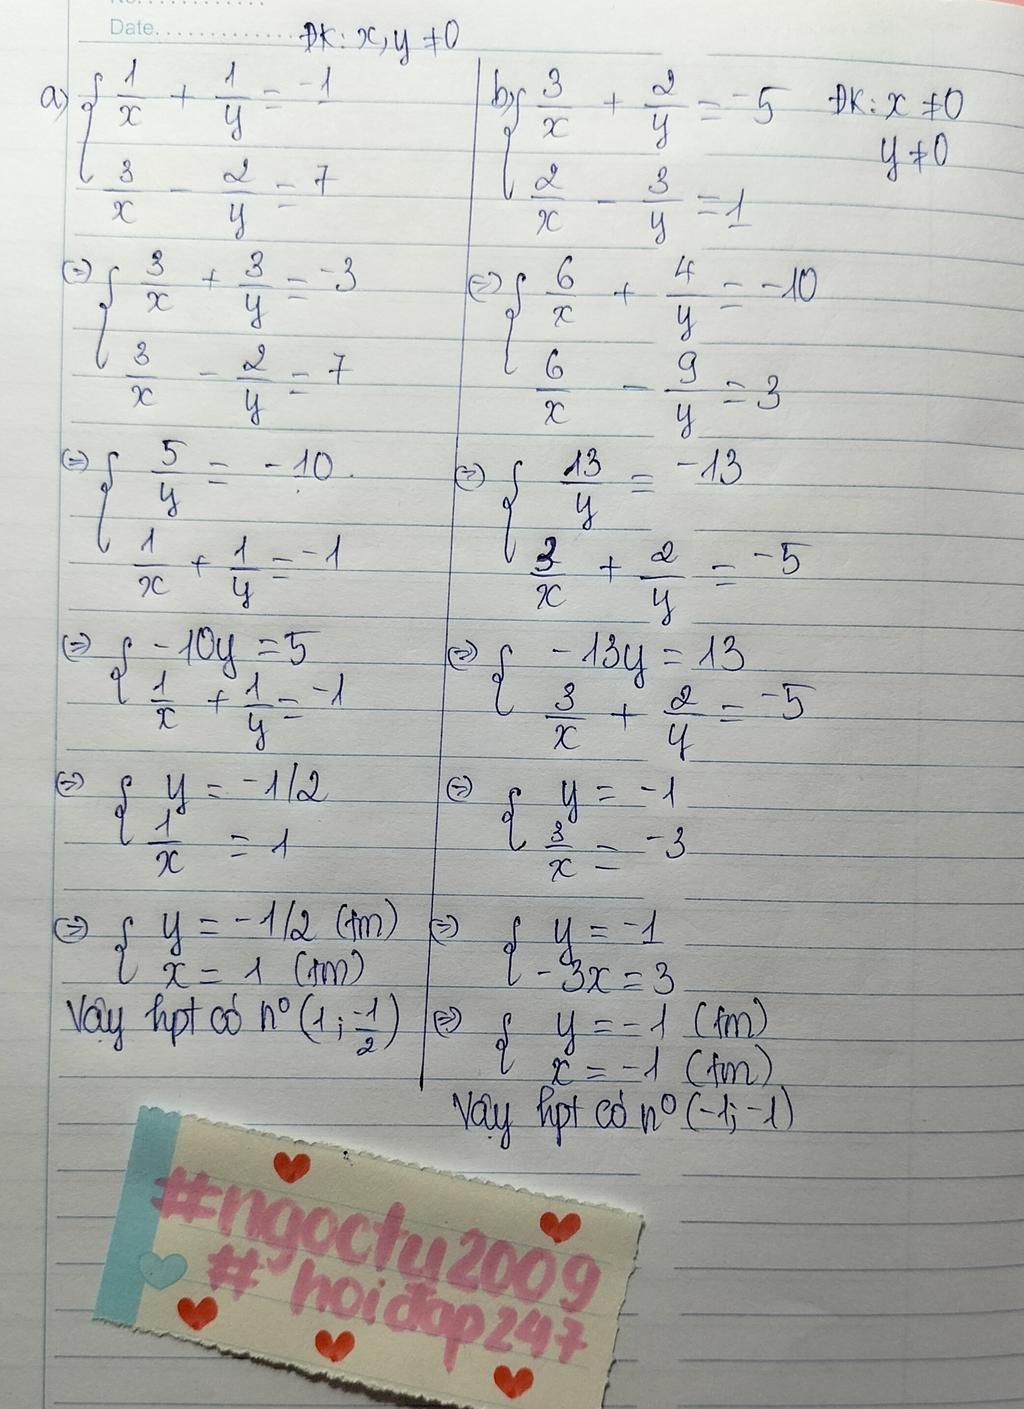 Date..............
ĐK: x, y ≠ 0
a) { 1/x + 1/y = -1
3/x - 2/y = 7
(=) { 3/x + 3/y = -3
3/x - 2/y = 7
(=) { 5/y = -10
1/x + 1/y = -1
(=) { -10y = 5
1/x + 1/y = -1
(=) { y = -1/2
1/x = 1
(=) { y = -1/2 (tm)
x = 1 (tm)
Vậy hpt có nº (1; -1/2)
b) { 3/x + 2/y = -5 ĐK: x ≠ 0
y ≠ 0
2/x - 3/y = 1
(=) { 6/x + 4/y = -10
6/x - 9/y = 3
(=) { 13/y = -13
3/x + 2/y = -5
(=) { -13y = 13
3/x + 2/y = -5
(=) { y = -1
3/x = -3
(=) { y = -1
-3x = 3
(=) { y = -1 (tm)
x = -1 (tm)
Vậy hpt có nº (-1; -1)
#ngoctu2009
# hoiđap247